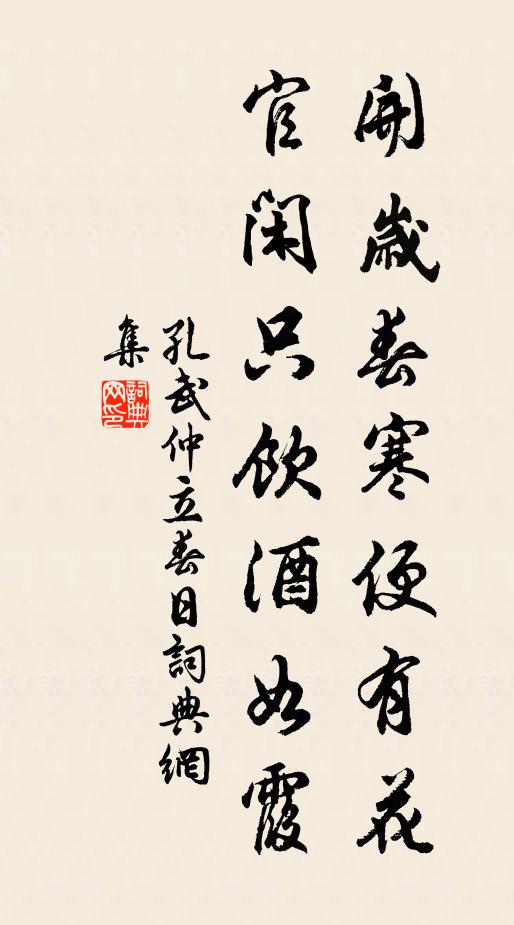 開歲春寒便有花
官閑只飲酒如霞
孔武仲立春日詞典網
集
詞典
网印